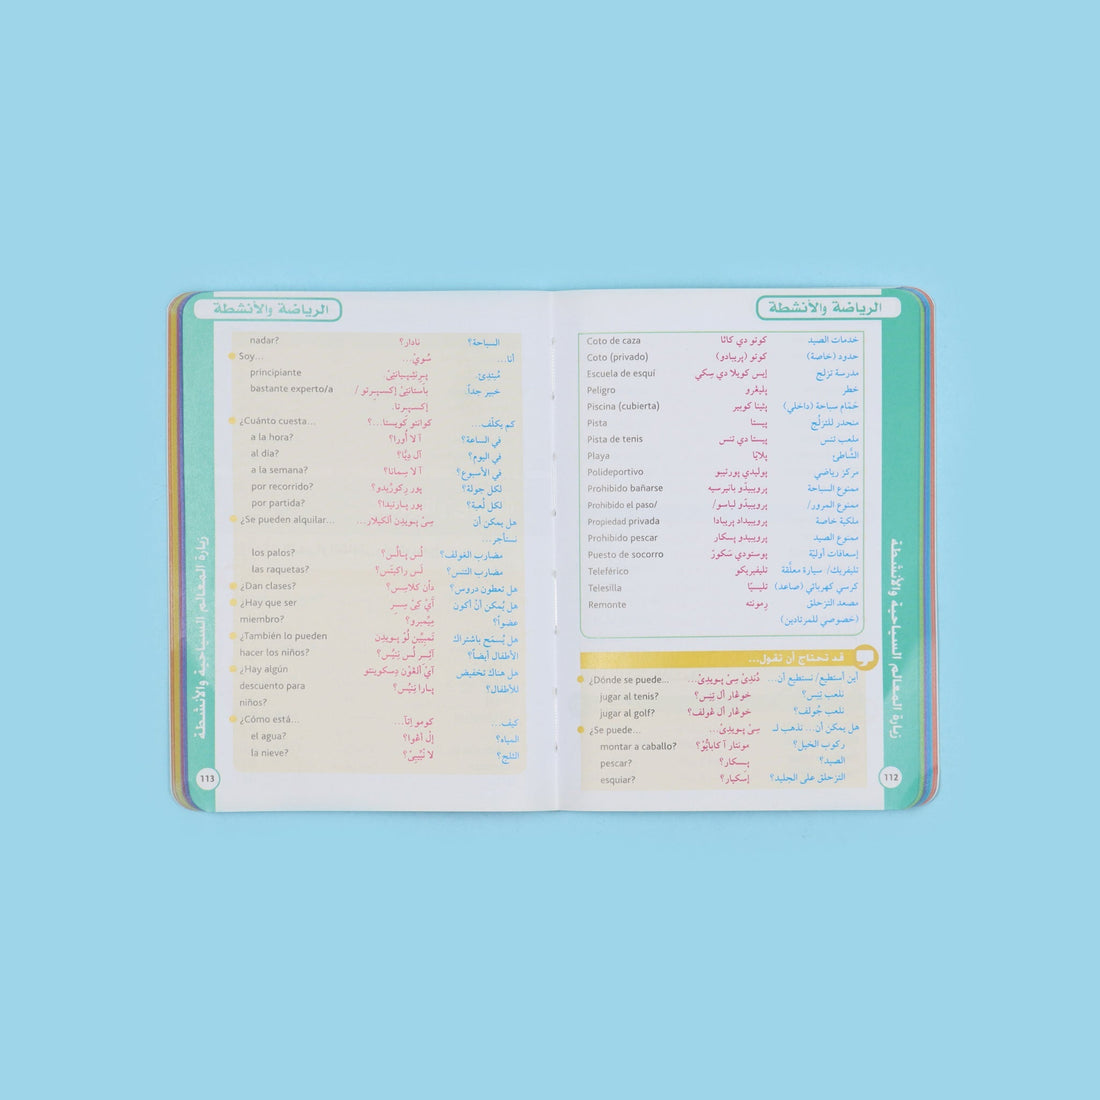 الرياضة والأنشطة
Coto de caza كوتو دي كاثا خدمات الصيد
Coto (privado) كوتو (پريبادو) حدود (خاصة)
Escuela de esquí إيس كويلا دي سكي مدرسة تزلج
Peligro پليغرو خطر
Piscina (cubierta) پثينا كوبير حَمّام سباحة (داخلي)
Pista پيستا منحدر للتزلّج
Pista de tenis پيستا دي تنس ملعب تنس
Playa پلايّا الشّاطئ
Polideportivo پوليدي پورتيبو مركز رياضي
Prohibido bañarse پروبيبدّو بانيرسيه ممنوع السباحة
Prohibido el paso/ پروبيبدّو لباسو/ ممنوع المرور/
Propiedad privada پروبيداد پريبادا ملكية خاصة
Prohibido pescar پروبيبدّو پسكار ممنوع الصيد
Puesto de socorro پوستودي سَكورَ إسعافات أوليّة
Teleférico تليفيريكو تليفريك/ سيارة معلّقة
Telesilla تليسيّا كرسي كهربائي (صاعد)
Remonte رمونته مصعد التزحلق
(خصوصي للمرتادين)
قد تحتاج أن تقول...
¿Dónde se puede... دُندِئ سِيْ پـويدِئ... أين أستطيع/ نستطيع أن...
jugar al tenis? خوغار آل تِنِس؟ نلعب تِنِس؟
jugar al golf? خوغار آل غولف؟ نلعب جُولف؟
¿Se puede... سِيْ پـويدِئ... هل يمكن أن... نذهب لـ
montar a caballo? مونتار آ كاباثيّوْ؟ ركوب الخيل؟
pescar? پسكار؟ الصيد؟
esquiar? إسكيار؟ التزحلق على الجليد؟
زيارة المعالم السياحية والأنشطة
112
الرياضة والأنشطة
nadar? نادار؟ السباحة؟
Soy... سُويْ... أنا...
principiante پـرِنثيـپـيانتِيْ مُبتدِئ.
bastante experto/a باستانتِيْ إكسـپـرتو / خبير جداً.
إكسـپـرتا.
¿Cuánto cuesta... كوانتو كويستا...؟ كم يكلّف...
a la hora? آ لا أورا؟ في الساعة؟
al día? آل دِيّا؟ في اليوم؟
a la semana? آ لا سِمانا؟ في الأسبوع؟
por recorrido? پور رِكورّيدو؟ لكل جولة؟
por partida? پور پـارتيدا؟ لكل لُعبة؟
¿Se pueden alquilar... سِيْ پـويدِن ألكيلار... هل يمكن أن
نستأجر...
los palos? لُس پـالُس؟ مضارب الغولف؟
las raquetas? لَس راكيتَس؟ مضارب التنس؟
¿Dan clases? دان كلاسِس؟ هل تعطون دروس؟
¿Hay que ser آيْ كِيْ سِـر هل يُمكن أنْ أكون
miembro? مِيْمبرو؟ عضواً؟
¿También lo pueden تَمبيِّن لُوْ پـويدِن هل يُسمَح باشتراك
hacer los niños? آثِـر لُس نِنيُس؟ الأطفال أيضاً؟
¿Hay algún آيْ ألغوْن دِسكوينتو هل هناك تخفيض
descuento para پـارا نِنيُس؟ للأطفال؟
niños?
¿Cómo está... كومو إتآ... كيف...
el agua? إلْ آغوا؟ المياه؟
la nieve? لا نْيِيبِيْ؟ الثلج؟
زيارة المعالم السياحية والأنشطة
113